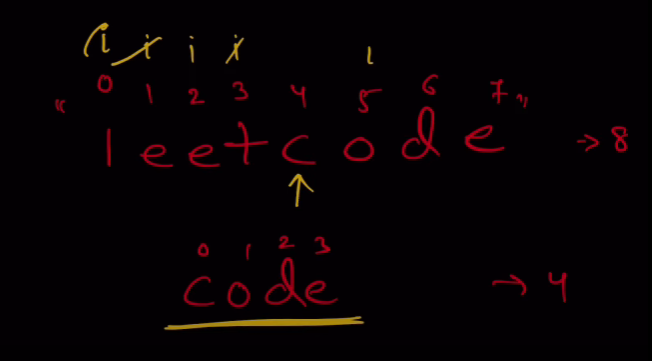 i i i i i
0 1 2 3 4 5 6 7
"leetcode" → 8
0 1 2 3
code → 4